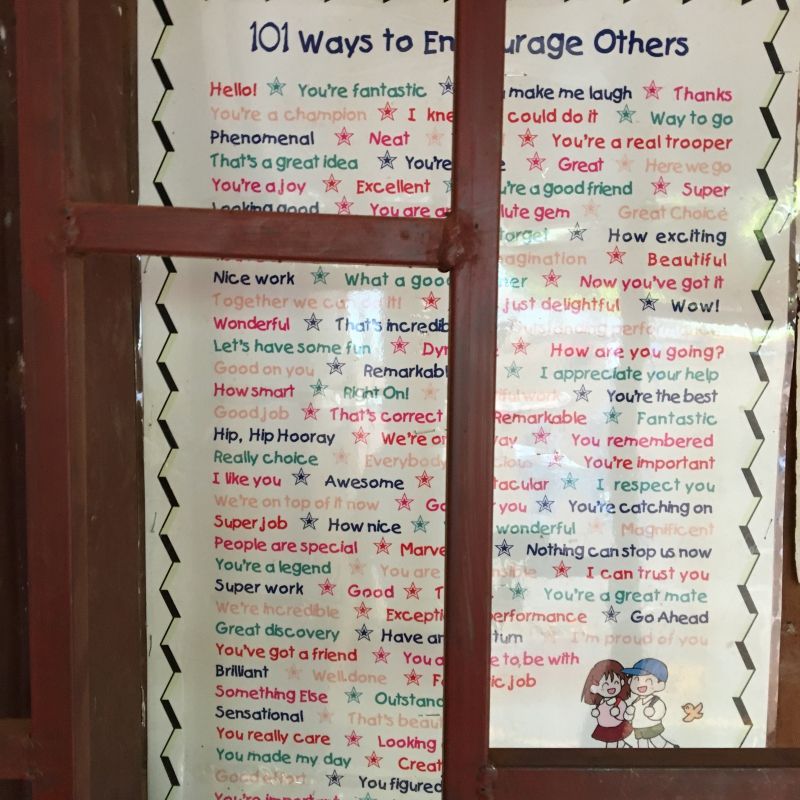 101 Ways to En urage Others
Hello! You're fantastic make me laugh Thanks
You're a champion I kne could do it Way to go
Phenomenal Neat You're a real trooper
That's a great idea You're Great Here we go
You're a joy Excellent u're a good friend Super
Looking good You are a lute gem Great Choice
forget How exciting
magination Beautiful
Nice work What a good ner Now you've got it
Together we can do it! just delightful Wow!
Wonderful That's incredib Outstanding performance
Let's have some fun Dyn How are you going?
Good on you Remarkabl I appreciate your help
How smart Right On! You're the best
Good job That's correct Remarkable Fantastic
Hip, Hip Hooray We're on way You remembered
Really choice Everybody You're important
I like you Awesome tacular I respect you
We're on top of it now Go you You're catching on
Super job How nice wonderful Magnificent
People are special Marve Nothing can stop us now
You're a legend You are I can trust you
Super work Good You're a great mate
We're incredible Excepti performance Go Ahead
Great discovery Have an tum I'm proud of you
You've got a friend You a e to be with
Brilliant Well done Fa ic job
Something Else Outstand
Sensational That's beaut
You really care Looking
You made my day Creat
Good effort You figured
You're important